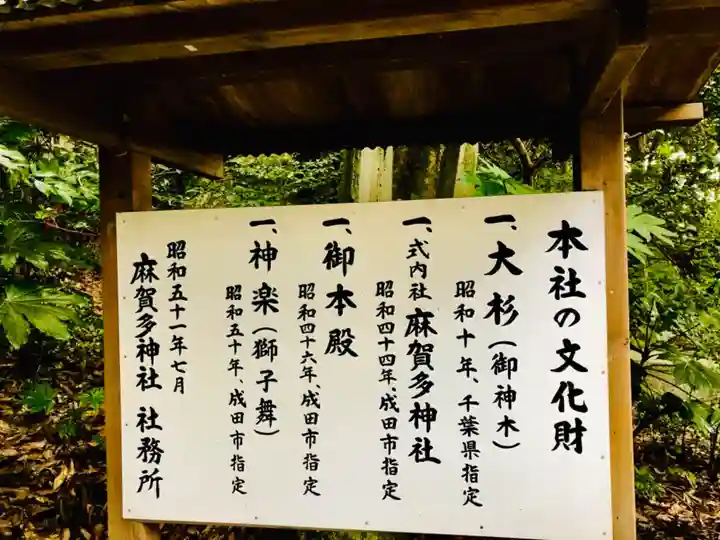 本社の文化財
一、大杉(御神木)
昭和十年、千葉県指定
一、式内社 麻賀多神社
昭和四十四年、成田市指定
一、御本殿
昭和四十六年、成田市指定
一、神楽(獅子舞)
昭和五十年、成田市指定
昭和五十一年七月
麻賀多神社 社務所